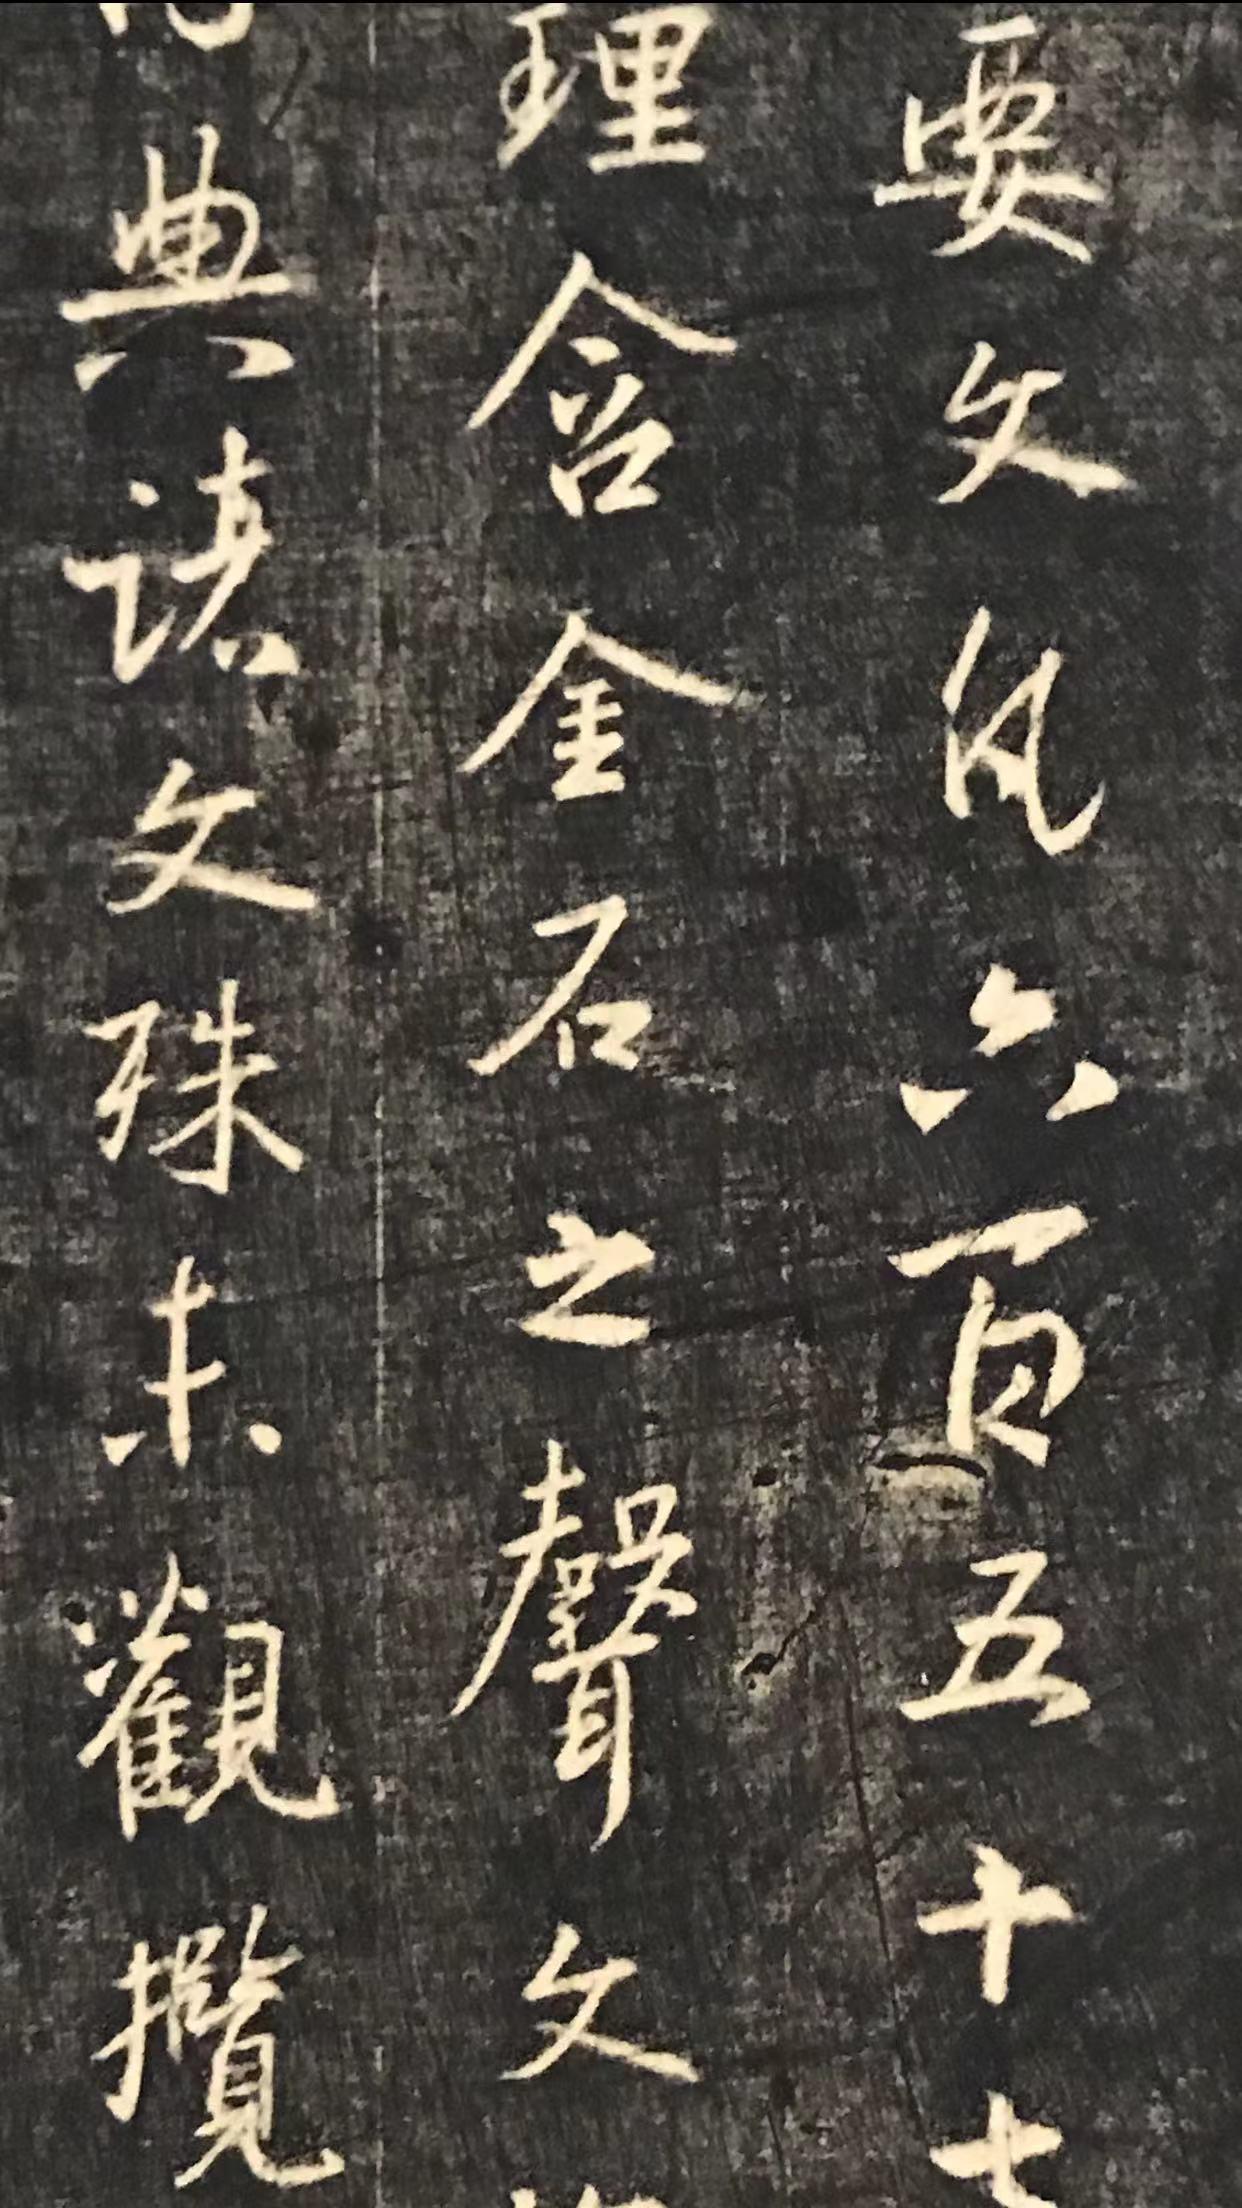 要文凡六百五十七
理含金石之聲文
典諸文殊未觀攬